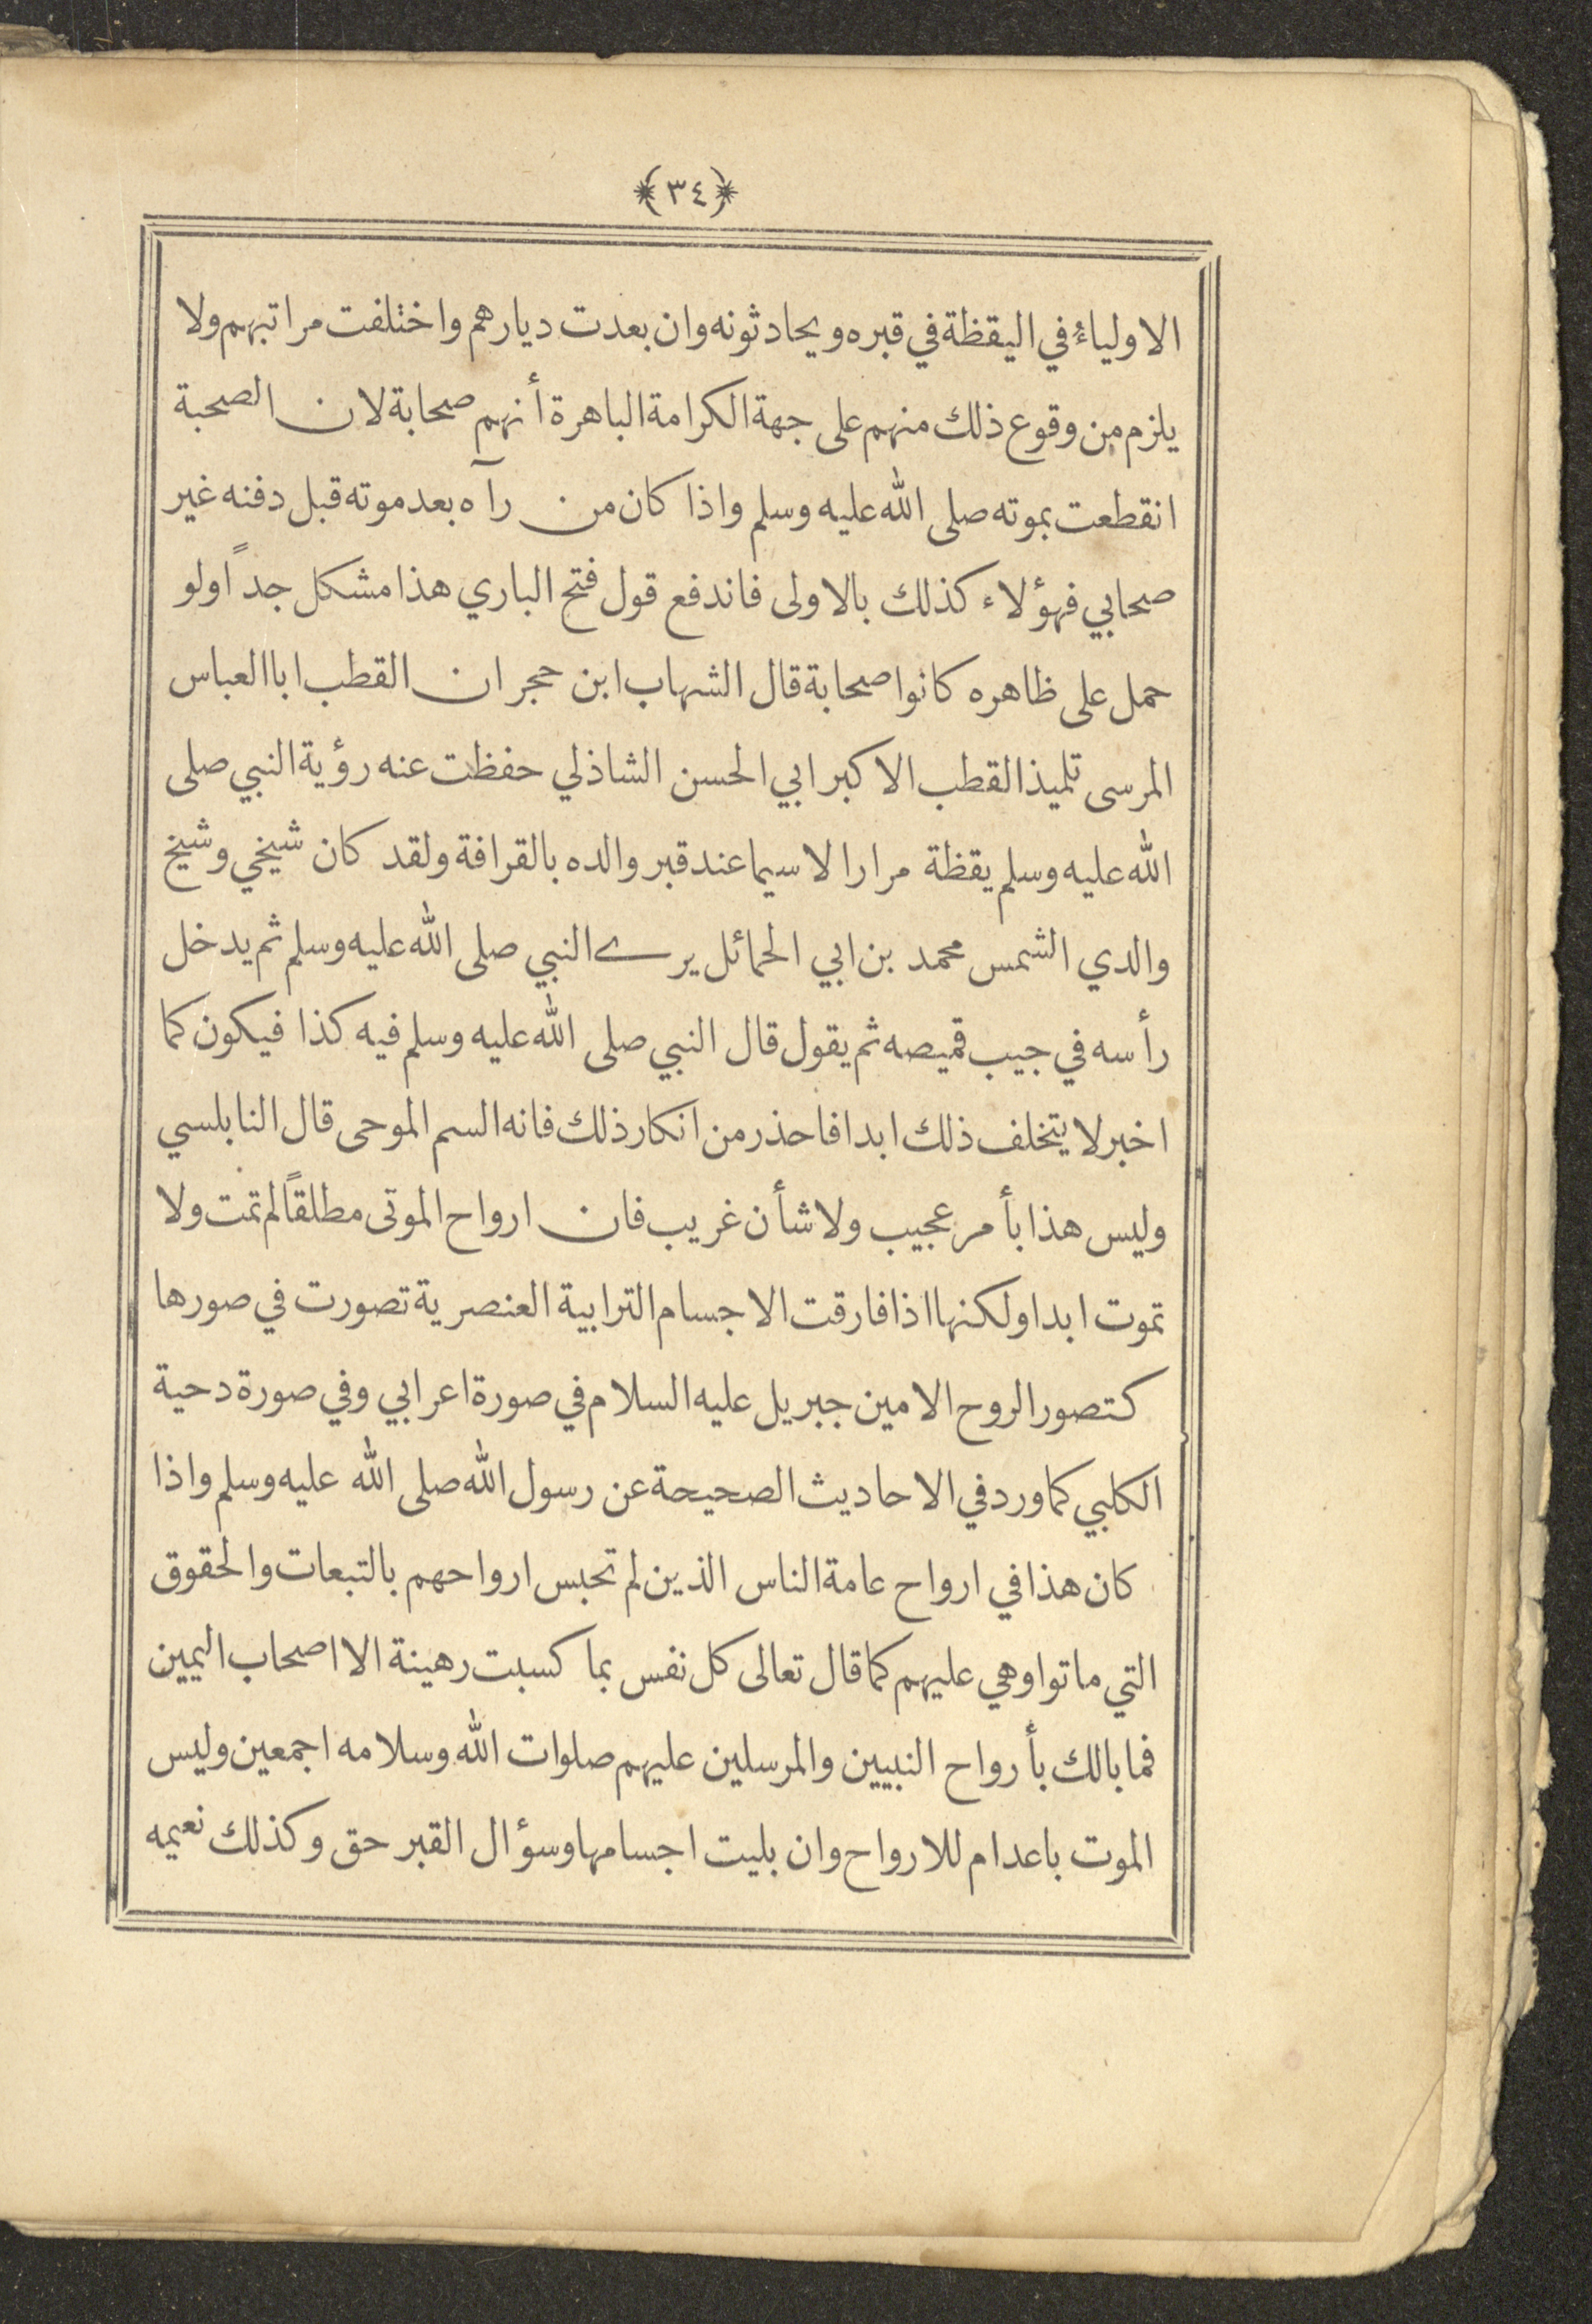 ﴿٣٤﴾
الاولياءُ في اليقظة في قبره ويحادثونه وان بعدت ديارهم واختلفت مراتبهم ولا
يلزم من وقوع ذلك منهم على جهة الكرامة الباهرة أنهم صحابة لان الصحبة
انقطعت بموته صلى الله عليه وسلم واذا كان من رآه بعد موته قبل دفنه غير
صحابي فهؤلاء كذلك بالاولى فاندفع قول فتح الباري هذا مشكل جداً ولو
حمل على ظاهره كانوا صحابة قال الشهاب ابن حجر ان القطب ابا العباس
المرسى تلميذ القطب الاكبر ابي الحسن الشاذلي حفظت عنه رؤية النبي صلى
الله عليه وسلم يقظة مرارا لا سيما عند قبر والده بالقرافة ولقد كان شيخي وشيخ
والدي الشمس محمد بن ابي الحمائل يرى النبي صلى الله عليه وسلم ثم يدخل
رأسه في جيب قميصه ثم يقول قال النبي صلى الله عليه وسلم فيه كذا فيكون كما
اخبر لا يتخلف ذلك ابدا فاحذر من انكار ذلك فانه السم الموحى قال النابلسي
وليس هذا بأمر عجيب ولا شأن غريب فان ارواح الموتى مطلقاً لم تمت ولا
تموت ابدا ولكنها اذا فارقت الاجسام الترابية العنصرية تصورت في صورها
كتصور الروح الامين جبريل عليه السلام في صورة اعرابي وفي صورة دحية
الكلبي كما ورد في الاحاديث الصحيحة عن رسول الله صلى الله عليه وسلم واذا
كان هذا في ارواح عامة الناس الذين لم تحبس ارواحهم بالتبعات والحقوق
التي ماتوا وهي عليهم كما قال تعالى كل نفس بما كسبت رهينة الا اصحاب اليمين
فما بالك بأرواح النبيين والمرسلين عليهم صلوات الله وسلامه اجمعين وليس
الموت باعدام للارواح وان بليت اجسامها وسؤال القبر حق وكذلك نعيمه